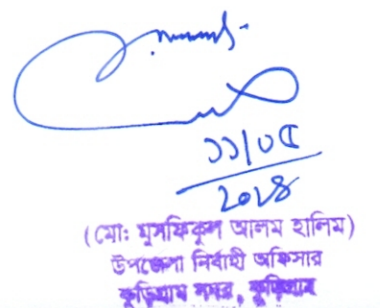 ১১/০৫
২০২৪
(মোঃ মুসফিকুল আলম হালিম)
উপজেলা নির্বাহী অফিসার
কুড়িগ্রাম সদর, কুড়িগ্রাম